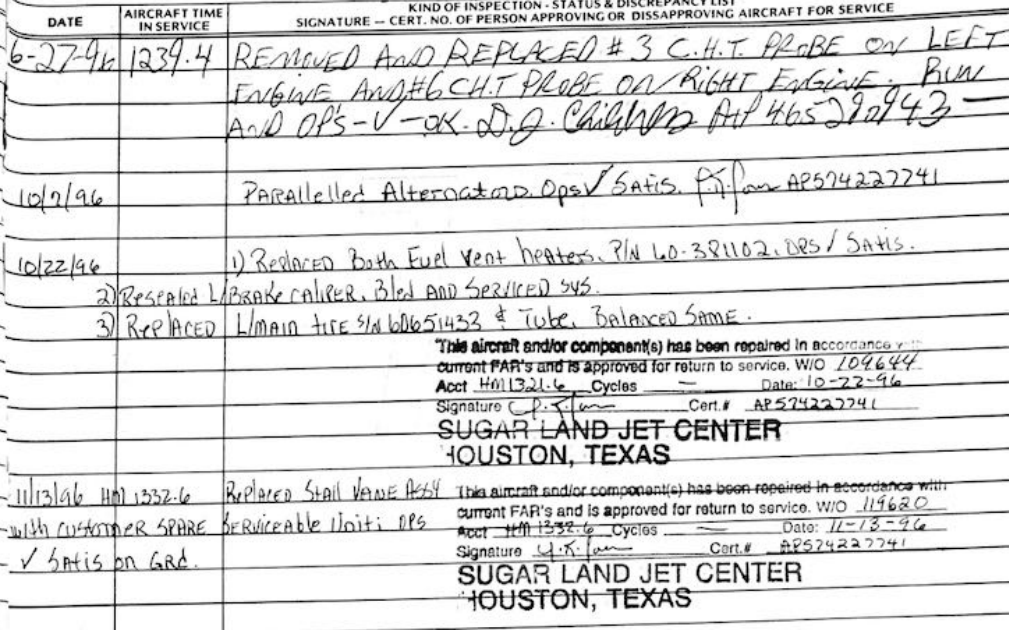 KIND OF INSPECTION - STATUS & DISCREPANCY LIST
DATE AIRCRAFT TIME IN SERVICE SIGNATURE — CERT. NO. OF PERSON APPROVING OR DISSAPPROVING AIRCRAFT FOR SERVICE
6-27-96 1239.4 REMOVED AND REPLACED #3 C.H.T. PROBE ON LEFT
ENGINE AND #6 CH.T PROBE ON RIGHT ENGINE. RUN
AND OP'S-√-OK. D.J. AP
10/7/96 PARAllelled Alternators. Ops √ SATIS. AP574227741
10/22/96 1) REPLACED Both Fuel Vent heaters. P/N 60-381102. OPS √ SATIS.
2) Resealed L/BRAKE CALIPER, Bled AND SERVICED SYS.
3) REPLACED L/MAIN tire S/N 60651433 & Tube. BALANCED SAME.
This aircraft and/or component(s) has been repaired in accordance
current FAR's and is approved for return to service. W/O 109644
Acct HM1321.6 Cycles — Date: 10-22-96
Signature Cert.# AP574227741
SUGAR LAND JET CENTER
HOUSTON, TEXAS
11/13/96 HM 1332.6 REPLACED Stall VANE ASSY
with CUSTOMER SPARE Serviceable Unit; OPS
√ SAtis on GRd.
This aircraft and/or component(s) has been repaired in accordance with
current FAR's and is approved for return to service. W/O 119620
Acct HM 1332.6 Cycles — Date: 11-13-96
Signature Cert.# AP574227741
SUGAR LAND JET CENTER
HOUSTON, TEXAS